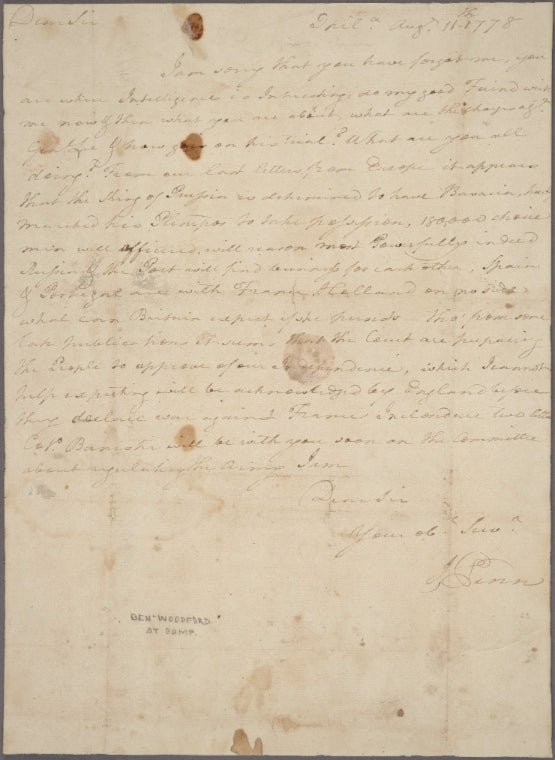 Dear Sir
Phil.a Aug.t 11th 1778
I am sorry that you have forgot me, you
are where Intelligence is Interesting, do my good Friend write
me now & then what you are about, what are the charges ag.t
Gen. Lee & how goes on his trial? What are you all
doing? From our last letters from Europe it appears
that the King of Prussia is determined to have Bavaria, has
marched his Troops to take possession, 180,000 choice
men well officered, will reason most Powerfully indeed
Russia & the Port will find business for each other, Spain
& Portugal are with France & Holland on no side
what can Britain expect if she persists tho' from some
late publications it seems that the Court are preparing
the People to approve of our Independence, which I cannot
help expecting will be acknowledged by England before
they declare war against France Inclosed are two letters
Col. Banister will be with you soon on the Committee
about regulating the Army I am
Dear Sir
Your ob.t Serv.t
J Penn
GEN. WOODFORD
AT CAMP.